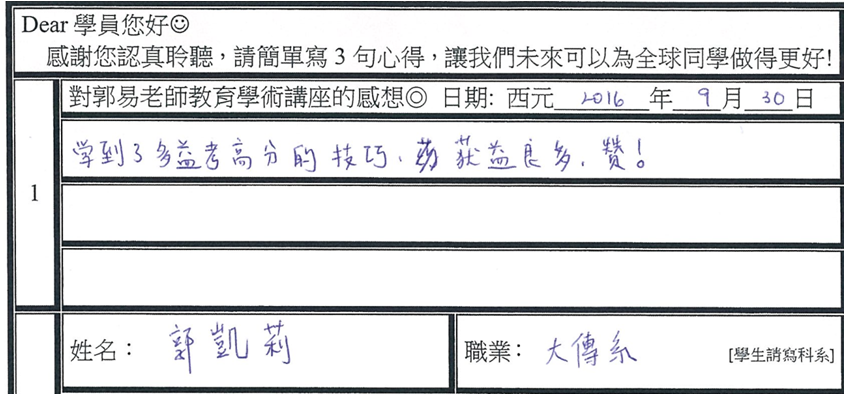 Dear 學員您好☺
感謝您認真聆聽，請簡單寫 3 句心得，讓我們未來可以為全球同學做得更好!
1
對郭易老師教育學術講座的感想◎ 日期: 西元 2016 年 9 月 30 日
学到了多益考高分的技巧、获益良多、贊！
姓名： 郭凱莉
職業： 大傳系 [學生請寫科系]